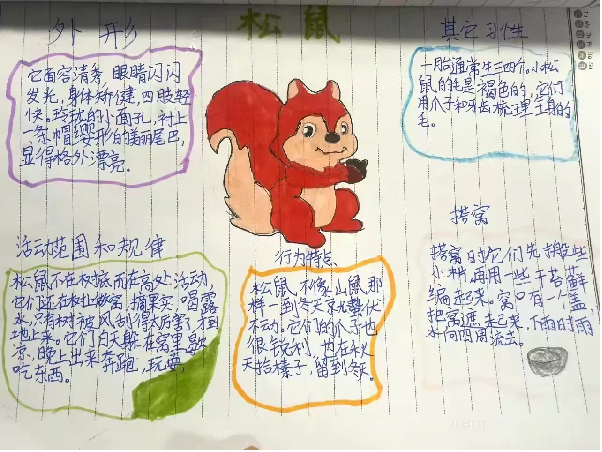 松鼠
外形
它面容清秀 眼睛闪闪
发光,身体矫健,四肢轻
快,玲珑的小面孔,衬上
一条帽缨形的美丽尾巴,
显得格外漂亮。
其它习性
一胎通常生三四个。小松
鼠的毛是褐色的,它们
用爪子和牙齿梳理全身的
毛。
活动范围和规律
松鼠不在树底而在高处活动,
它们还在树上做窝,摘果实,喝露
水,只有树被风刮得太厉害了,才到
地上来。它们白天躲在窝里歇
凉,晚上出来奔跑,玩耍,
吃东西。
行为特点
松鼠不像山鼠那
样一到冬天就蛰伏
不动。它们的爪子也
很锐利,也在秋
天拾榛子,留到冬天。
搭窝
搭窝时,它们先搬些
小树,再用一些干苔藓
编起来。窝口有一个盖,
把窝遮起来,下雨时雨
水向四周流去。